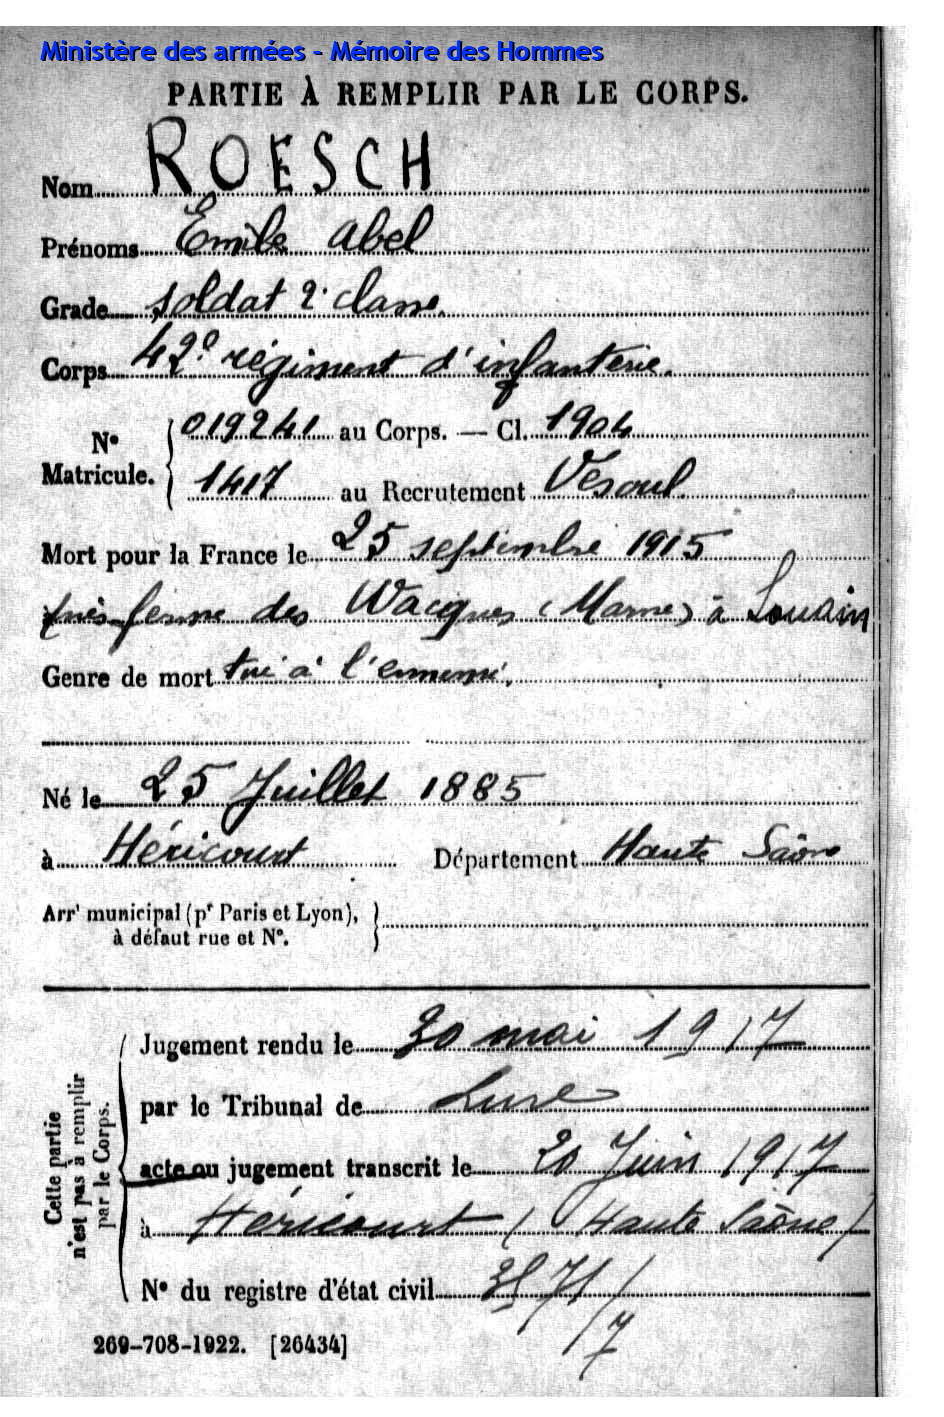 Ministère des armées - Mémoire des Hommes
PARTIE À REMPLIR PAR LE CORPS.
Nom ROESCH
Prénoms Emile Abel
Grade soldat 2e classe.
Corps 42e régiment d'infanterie.
N° Matricule. 019241 au Corps. — Cl. 1904
1417 au Recrutement Vesoul
Mort pour la France le 25 septembre 1915
près ferme des Wacques (Marne) à Souain
Genre de mort tué à l'ennemi.
Né le 25 Juillet 1885
à Héricourt Département Haute Saône
Arrt municipal (pr Paris et Lyon),
à défaut rue et N°.
Cette partie
n'est pas à remplir
par le Corps.
Jugement rendu le 30 mai 1917
par le Tribunal de Lure
acte ou jugement transcrit le 20 Juin 1917
à Héricourt (Haute Saône)
N° du registre d'état civil
269-708-1922. [26434]